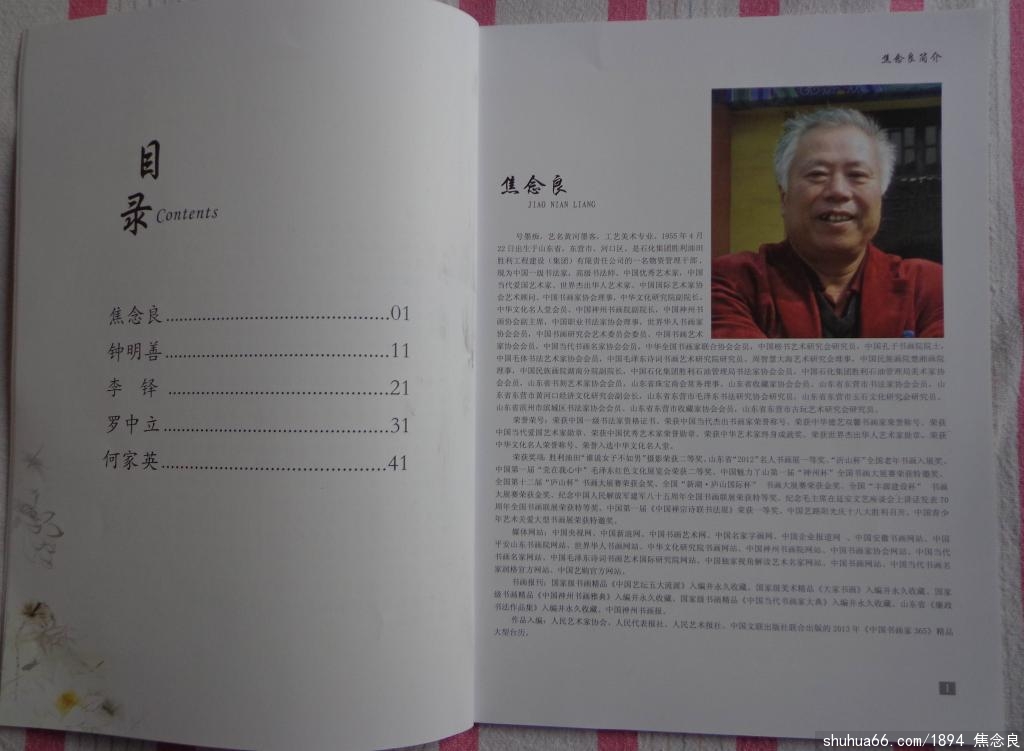 目
录 Contents
焦念良......01
钟明善......11
李 铎......21
罗中立......31
何家英......41
焦念良简介
焦念良
JIAO NIAN LIANG
号墨痴，艺名黄河墨客，工艺美术专业，1955年4月
22日出生于山东省，东营市，河口区，是石化集团胜利油田
胜利工程建设（集团）有限责任公司的一名物资管理干部，
现为中国一级书法家、高级书法师、中国优秀艺术家、中国
当代爱国艺术家、世界杰出华人艺术家、中国国际艺术家协
会艺术顾问、中国书画家协会理事，中华文化研究院副院长，
中华文化名人堂会员、中国神州书画院副院长，中国神州书
画协会副主席，中国职业书法家协会理事，世界华人书画家
协会会员，中国书画研究会艺术委员会委员、中国书画艺术
家协会会员、中国当代书画名家协会会员，中华全国书画家联合协会会员，中国榜书艺术研究会研究员、中国孔子书画院院士，
中国毛体书法艺术家协会会员、中国毛泽东诗词书画艺术研究院研究员、周智慧大海艺术研究会理事，中国民族画院楚湘画院
理事，中国民族画院湖南分院副院长，中国石化集团胜利石油管理局书法家协会会员、中国石化集团胜利石油管理局美术家协
会会员，山东省书刻艺术家协会会员，山东省珠宝商会常务理事，山东省收藏家协会会员、山东省东营市书法家协会会员，山
东省东营市黄河口经济文化研究会副会长，山东省东营市毛泽东书法研究协会研究员、山东省东营市玉石文化研究会研究员、
山东省滨州市滨城区书法家协会会员、山东省东营市收藏家协会会员，山东省东营市古玩艺术研究会研究员。
荣誉荣号：荣获中国一级书法家资格证书、荣获中国当代杰出书画家荣誉称号、荣获中华德艺双馨书画家荣誉称号、荣获
中国当代爱国艺术家勋章、荣获中国优秀艺术家荣誉勋章、荣获中华艺术家终身成就奖、荣获世界杰出华人艺术家勋章、荣获
中华文化名人荣誉称号、荣誉入选中华文化名人堂。
荣获奖项：胜利油田“谁说女子不如男”摄影荣获二等奖，山东省“2012”名人书画展一等奖、“沂山杯”全国老年书画入展奖，
中国第一届“党在我心中”毛泽东红色文化展览会荣获二等奖、中国魅力丫山第一届“神州杯”全国书画大展赛荣获特邀奖，
全国第十二届“庐山杯”书画大展赛荣获金奖、全国“新潮·庐山国际杯” 书画大展赛荣获金奖、全国“丰源建设杯” 书画
大展赛荣获金奖，纪念中国人民解放军建军八十五周年全国书画联展荣获特等奖、纪念毛主席在延安文艺座谈会上讲话发表70
周年全国书画联展荣获特等奖、中国第一届《中国禅宗诗联书法展》荣获一等奖，中国艺路阳光庆十八大胜利召开、中国青少
年艺术关爱大型书画展荣获特邀奖。
媒体网站：中国央视网、中国新浪网、中国书画艺术网、中国名家字画网、中国企业报道网 、中国安徽书画网站、中国
平安山东书画院网站、世界华人书画网站、中华文化研究院书画网站、中国神州书画院网站、中国书画家协会网站、中国当代
书画名家网站、中国毛泽东诗词书画艺术国际研究院网站、中国独家视角解说艺术名家网站、中国书画网站、中国当代书画名
家润格官方网站、中国艺购官方网站。
书画报刊：国家级书画精品《中国艺坛五大流派》入编并永久收藏、国家级美术精品《大家书画》入编并永久收藏、国家
级书画精品《中国神州书画雅典》入编并永久收藏、国家级书画精品《中国当代书画家大典》入编并永久收藏、山东省《廉政
书法作品集》入编并永久收藏、中国神州书画报。
作品入编：人民艺术家协会、人民代表报社、人民艺术报社、中国文联出版社联合出版的2013年《中国书画家365》精品
大型台历。
1
shuhua66.com/1894 焦念良